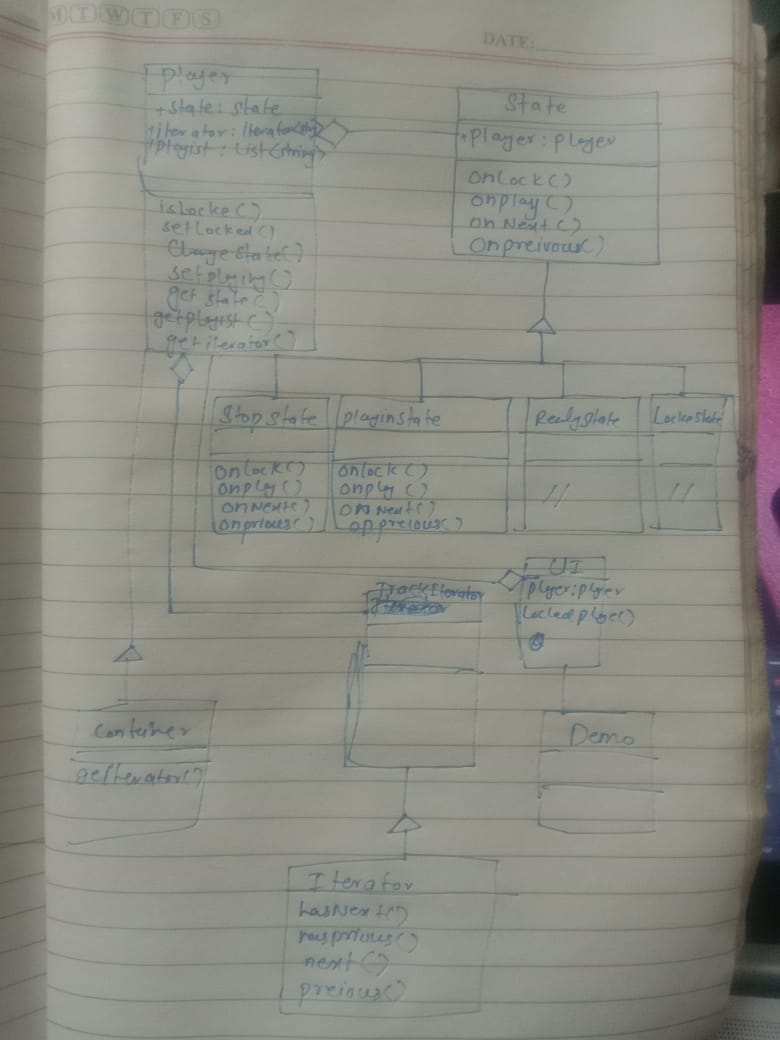 M T W T F S
DATE:
Player
+State: State
+iterator: Iterator(str)
+Playist: List(string)
isLocke()
setLocked()
ChangeState()
setplying()
get state()
getplayist()
getiterator()
State
+Player: player
onLock()
onplay()
onNext()
Onpreivous()
StopState
onlock()
onply()
onNext()
onprious()
plaginstate
onlock()
onply()
onNext()
onprecious()
ReadyState
//
LockeState
//
UI
Plyer:plyer
Lockedplye()
TrackIterator
Container
geIterator()
Demo
Iterator
hasNext()
hasprious()
next()
precious()